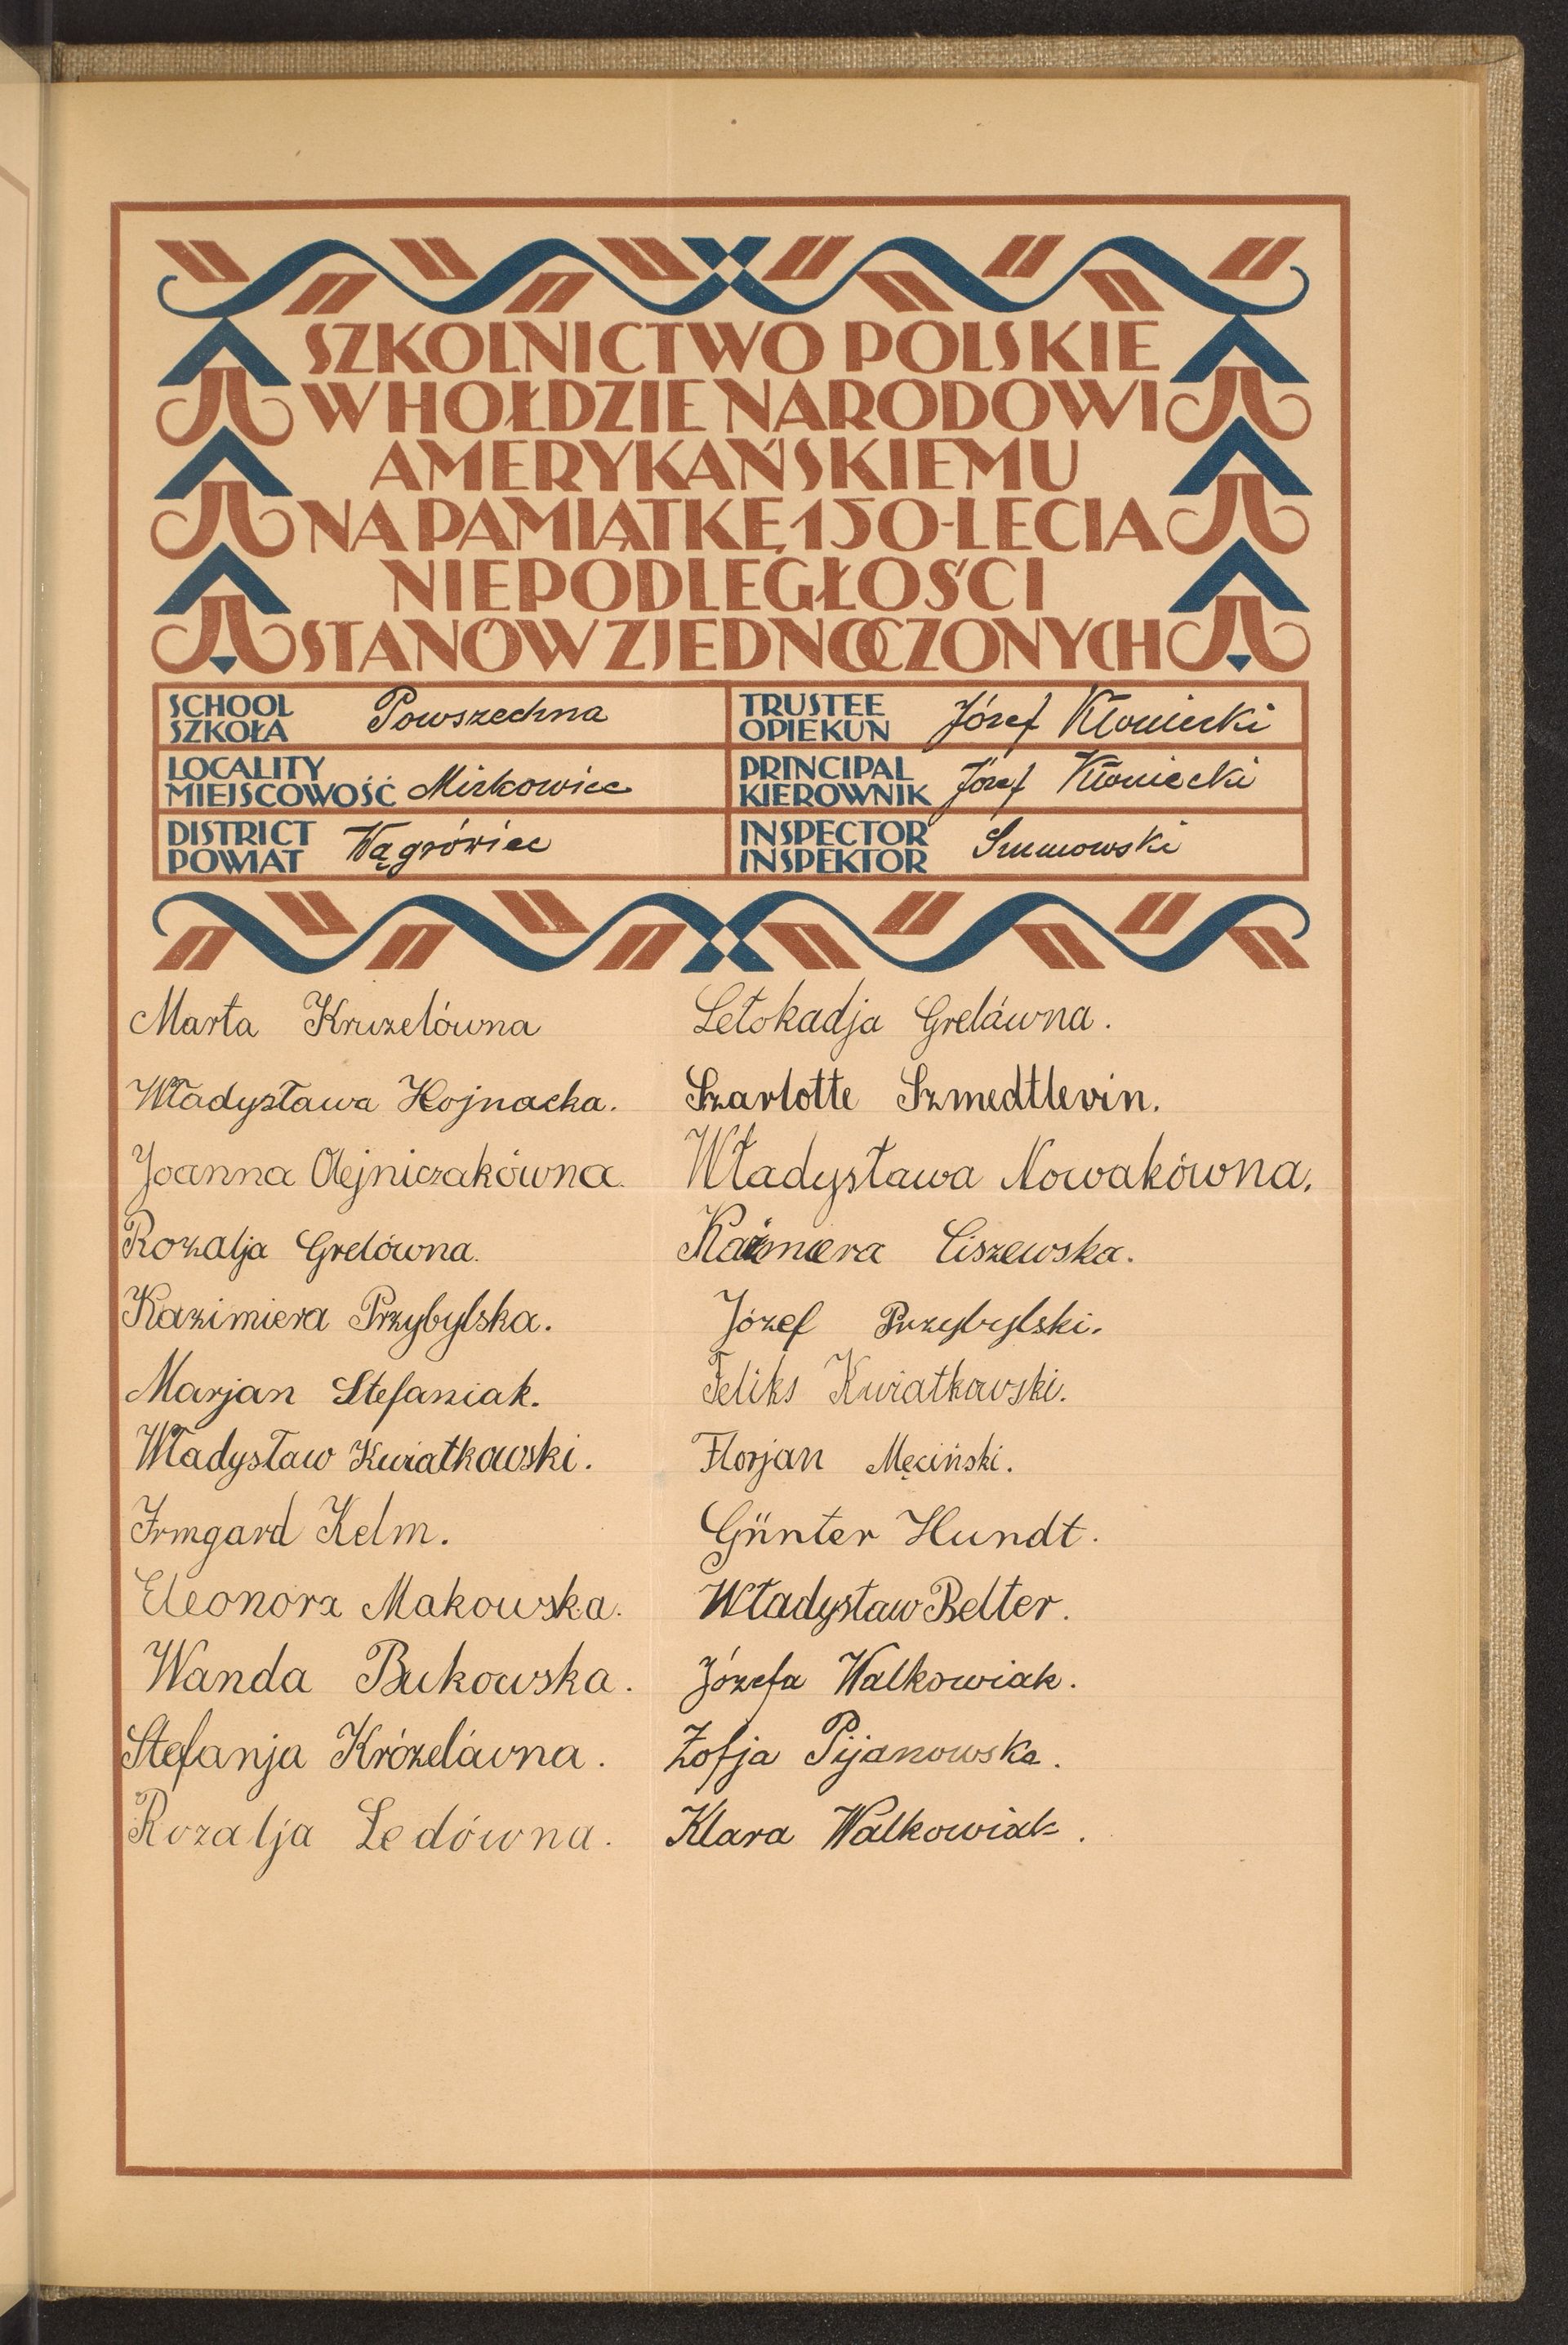 SZKOLNICTWO POLSKIE
W HOŁDZIE NARODOWI
AMERYKAŃSKIEMU
NA PAMIĄTKĘ 150-LECIA
NIEPODLEGŁOŚCI
STANÓW ZJEDNOCZONYCH
SCHOOL
SZKOŁA
Powszechna
TRUSTEE
OPIEKUN
Józef Kłoniecki
LOCALITY
MIEJSCOWOŚĆ
Mirkowice
PRINCIPAL
KIEROWNIK
Józef Kłoniecki
DISTRICT
POWIAT
Wągrówiec
INSPECTOR
INSPEKTOR
Marta Kruzelówna
Letokadja Greláwna.
Władysława Hojnacka.
Szarlotte Szmedtlevin.
Joanna Olejniczakówna.
Władysława Nowakówna.
Rozalja Grelówna.
Kaźmiera Ciszewska.
Kazimiera Przybylska.
Józef Przybylski.
Marjan Stefaniak.
Feliks Kwiatkowski.
Władysław Kwiatkowski.
Florjan Męciński.
Irmgard Kelm.
Günter Hundt.
Eleonora Makowska.
Władysław Belter.
Wanda Bukowska.
Józefa Walkowiak.
Stefanja Krózeláwna.
Zofja Pijanowska.
Rozalja Ledówna.
Klara Walkowiak.